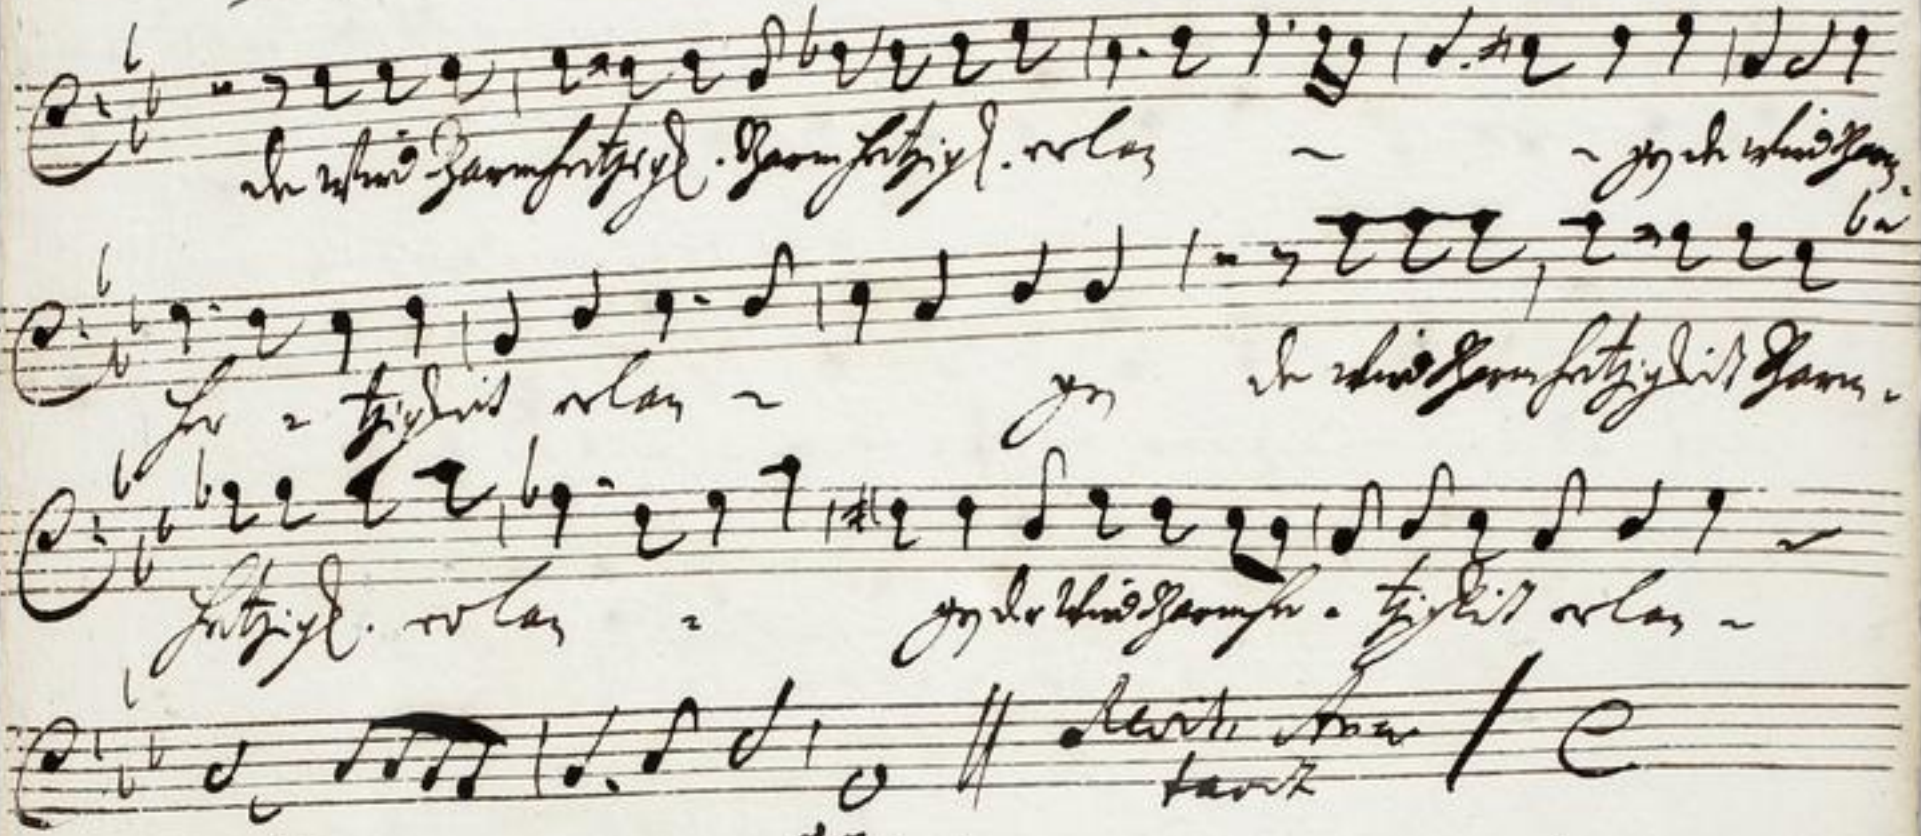 der wird Barmhertzigk. Barmhertzigk. erlan - - gen der wird Barm-
her - tzigkeit erlan - gen der wird Barmhertzigkeit Barm-
hertzigk. erlan - gen der wird Barmhe - tzigkeit erlan -
Recit.
tacet